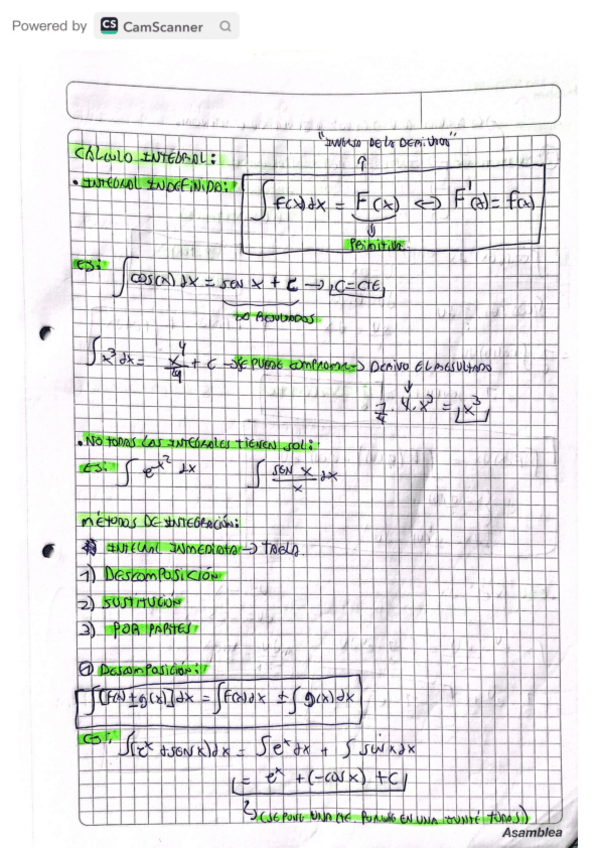 Powered by CS CamScanner
"INVERSO DE LA DERIVADA"
CÁLCULO INTEGRAL:
• INTEGRAL INDEFINIDA: ∫ f(x)dx = F(x) ⟺ F'(x) = f(x)
PRIMITIVA
EJ: ∫ cos(x) dx = SEN x + C → C=CTE
∞ RESULTADOS
∫ x³ dx = x⁴/4 + C → SE PUEDE COMPROBAR → DERIVO EL RESULTADO
1/4 · 4 · x³ = x³
• NO TODAS LAS INTEGRALES TIENEN SOL:
EJ: ∫ e^x² dx ∫ SEN x/x dx
MÉTODOS DE INTEGRACIÓN:
INTEGRAL INMEDIATA → TABLA
1) DESCOMPOSICIÓN
2) SUSTITUCIÓN
3) POR PARTES
① DESCOMPOSICIÓN:
∫ [f(x) ± g(x)] dx = ∫ f(x)dx ± ∫ g(x)dx
EJ: ∫ (e^x + SEN x) dx = ∫ e^x dx + ∫ sen x dx
= e^x + (-cos x) + C
(SE PONE UNA CTE. PORQUE EN UNA JUNTÉ TODAS)
Asamblea